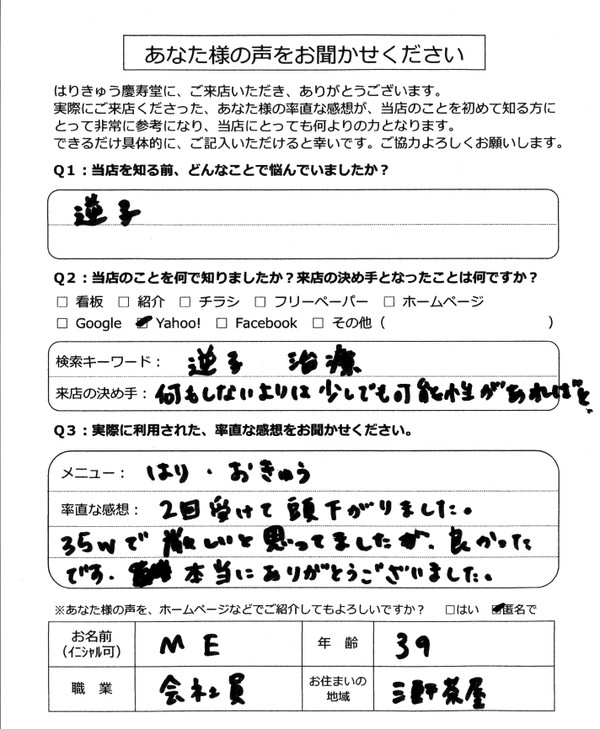 あなた様の声をお聞かせください
はりきゅう慶寿堂に、ご来店いただき、ありがとうございます。
実際にご来店くださった、あなた様の率直な感想が、当店のことを初めて知る方に
とって非常に参考になり、当店にとっても何よりの力となります。
できるだけ具体的に、ご記入いただけると幸いです。ご協力よろしくお願いします。
Q1：当店を知る前、どんなことで悩んでいましたか？
逆子
Q2：当店のことを何で知りましたか？来店の決め手となったことは何ですか？
□ 看板 □ 紹介 □ チラシ □ フリーペーパー □ ホームページ
□ Google ☑ Yahoo! □ Facebook □ その他（ ）
検索キーワード： 逆子 治療
来店の決め手： 何もしないよりは 少しでも可能性があればと、
Q3：実際に利用された、率直な感想をお聞かせください。
メニュー： はり・おきゅう
率直な感想： 2回受けて 頭下がりました。
35wで 厳しいと思ってましたが、良かった
です. 本当にありがとうございました。
※あなた様の声を、ホームページなどでご紹介してもよろしいですか？ □はい ☑匿名で
お名前（ｲﾆｼｬﾙ可） M E 年 齢 39
職 業 会社員 お住まいの地域 三軒茶屋